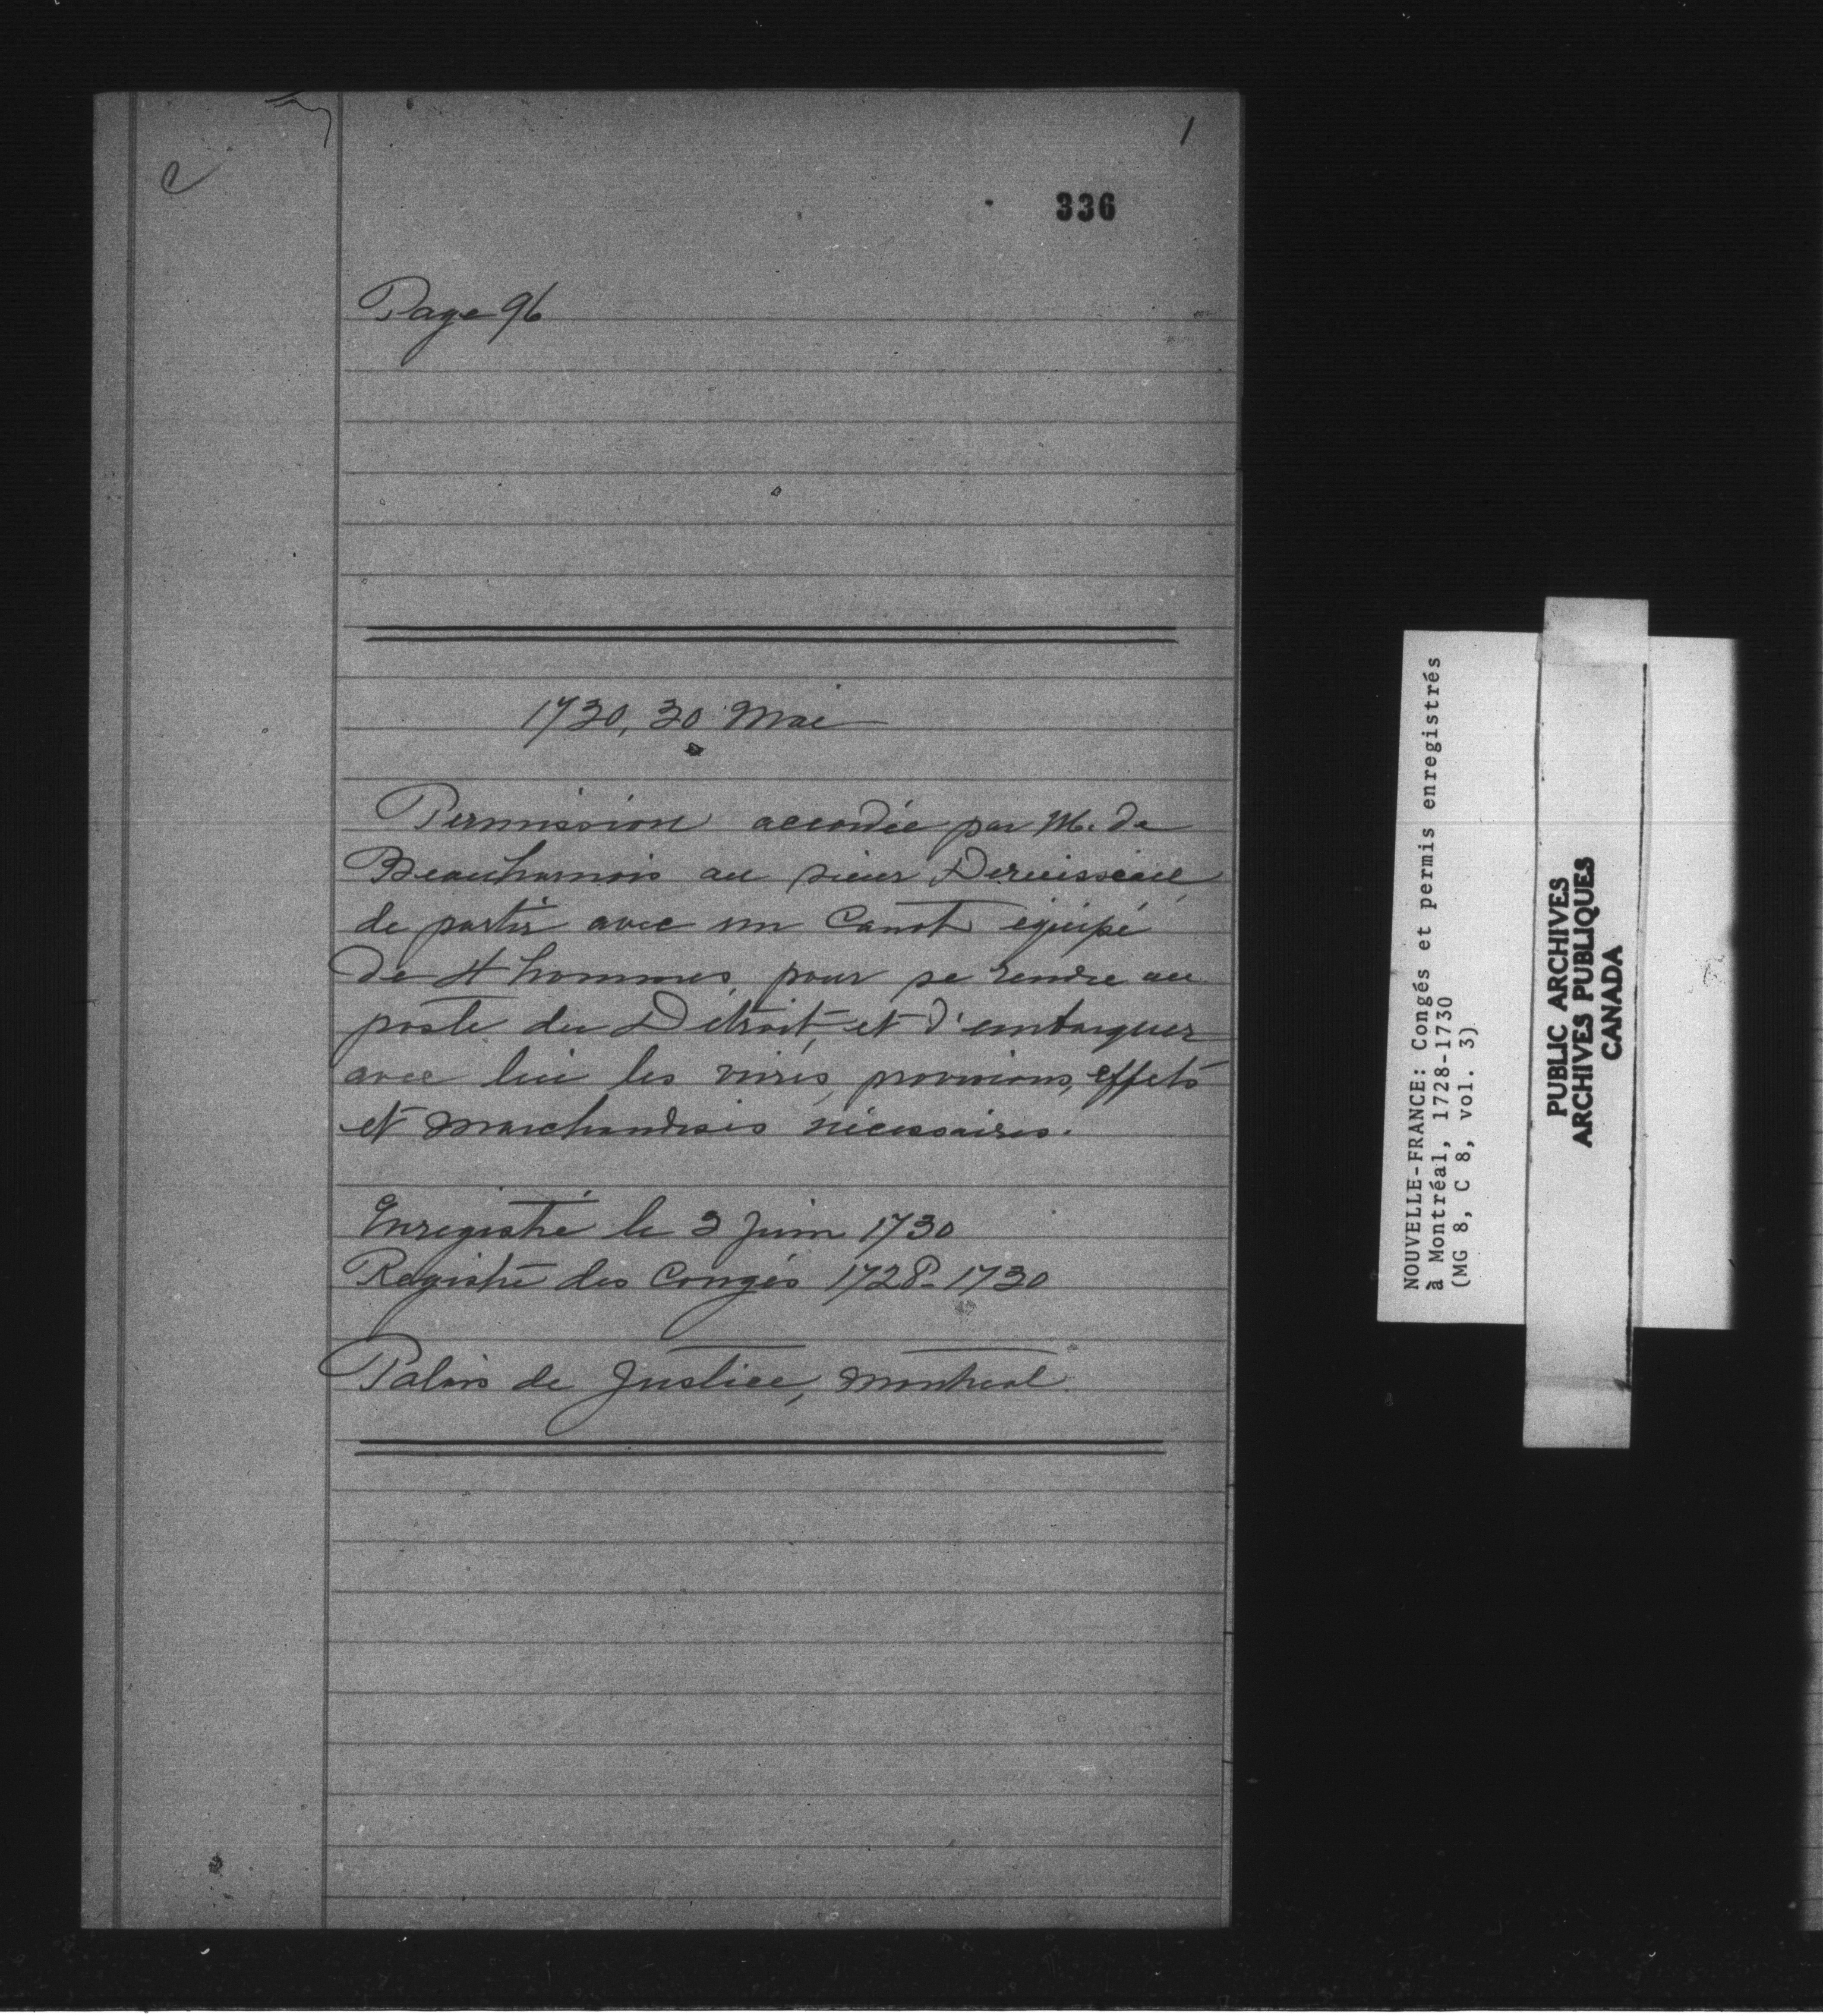 1
336
Page 96
1730, 30 Mai
Permission accordée par M. de
Beauharnois au sieur Deruisseau
de partir avec un Canot équipé
de 4 hommes, pour se rendre au
poste du Détroit, et d'embarquer
avec lui les vivres, provisions, effets
et marchandises nécessaires.
Enregistré le 3 Juin 1730
Registre des Congés 1728-1730
Palais de Justice, Montreal.
NOUVELLE-FRANCE: Congés et permis enregistrés
à Montréal, 1728-1730
(MG 8, C 8, vol. 3)
PUBLIC ARCHIVES
ARCHIVES PUBLIQUES
CANADA